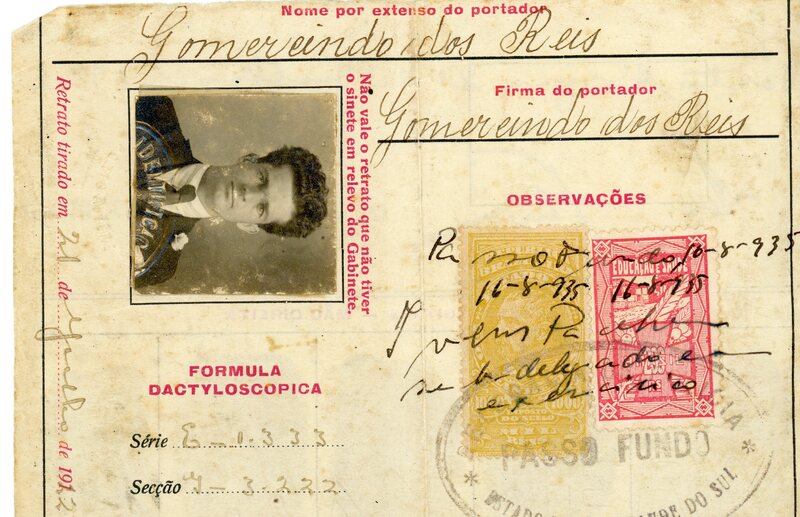 Nome por extenso do portador
Gomercindo dos Reis
Firma do portador
Gomercindo dos Reis
Retrato tirado em 21 de Junho de 1922
Não vale o retrato que não tiver
o sinete em relevo do Gabinete.
OBSERVAÇÕES
Passo Fundo, 16-8-935
16-8-935 16-8-935
subdelegado em
exercicio
EDUCAÇÃO E SAUDE
FORMULA
DACTYLOSCOPICA
Série E-1.333
Secção I-3.222
PASSO FUNDO
ESTADO DO RIO GRANDE DO SUL